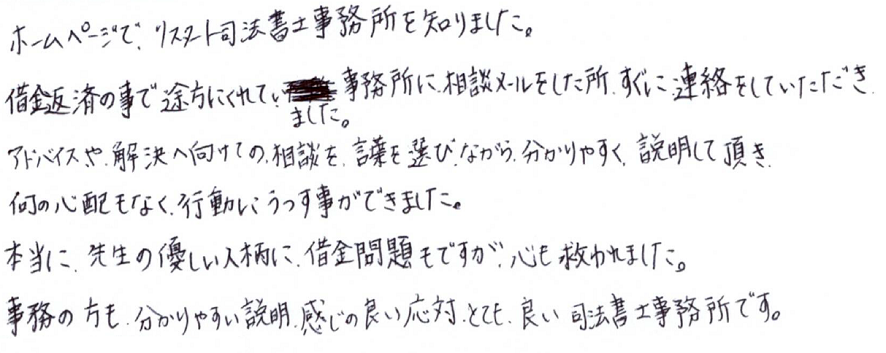 ホームページで、リスタート司法書士事務所を知りました。
借金返済の事で途方にくれてい
ました。
事務所に、相談メールをした所、すぐに連絡をしていただき、
アドバイスや、解決へ向けての、相談を、言葉を選びながら、分かりやすく、説明して頂き、
何の心配もなく、行動にうつす事ができました。
本当に、先生の優しい人柄に、借金問題もですが、心も救われました。
事務の方も、分かりやすい説明、感じの良い応対、とても、良い司法書士事務所です。